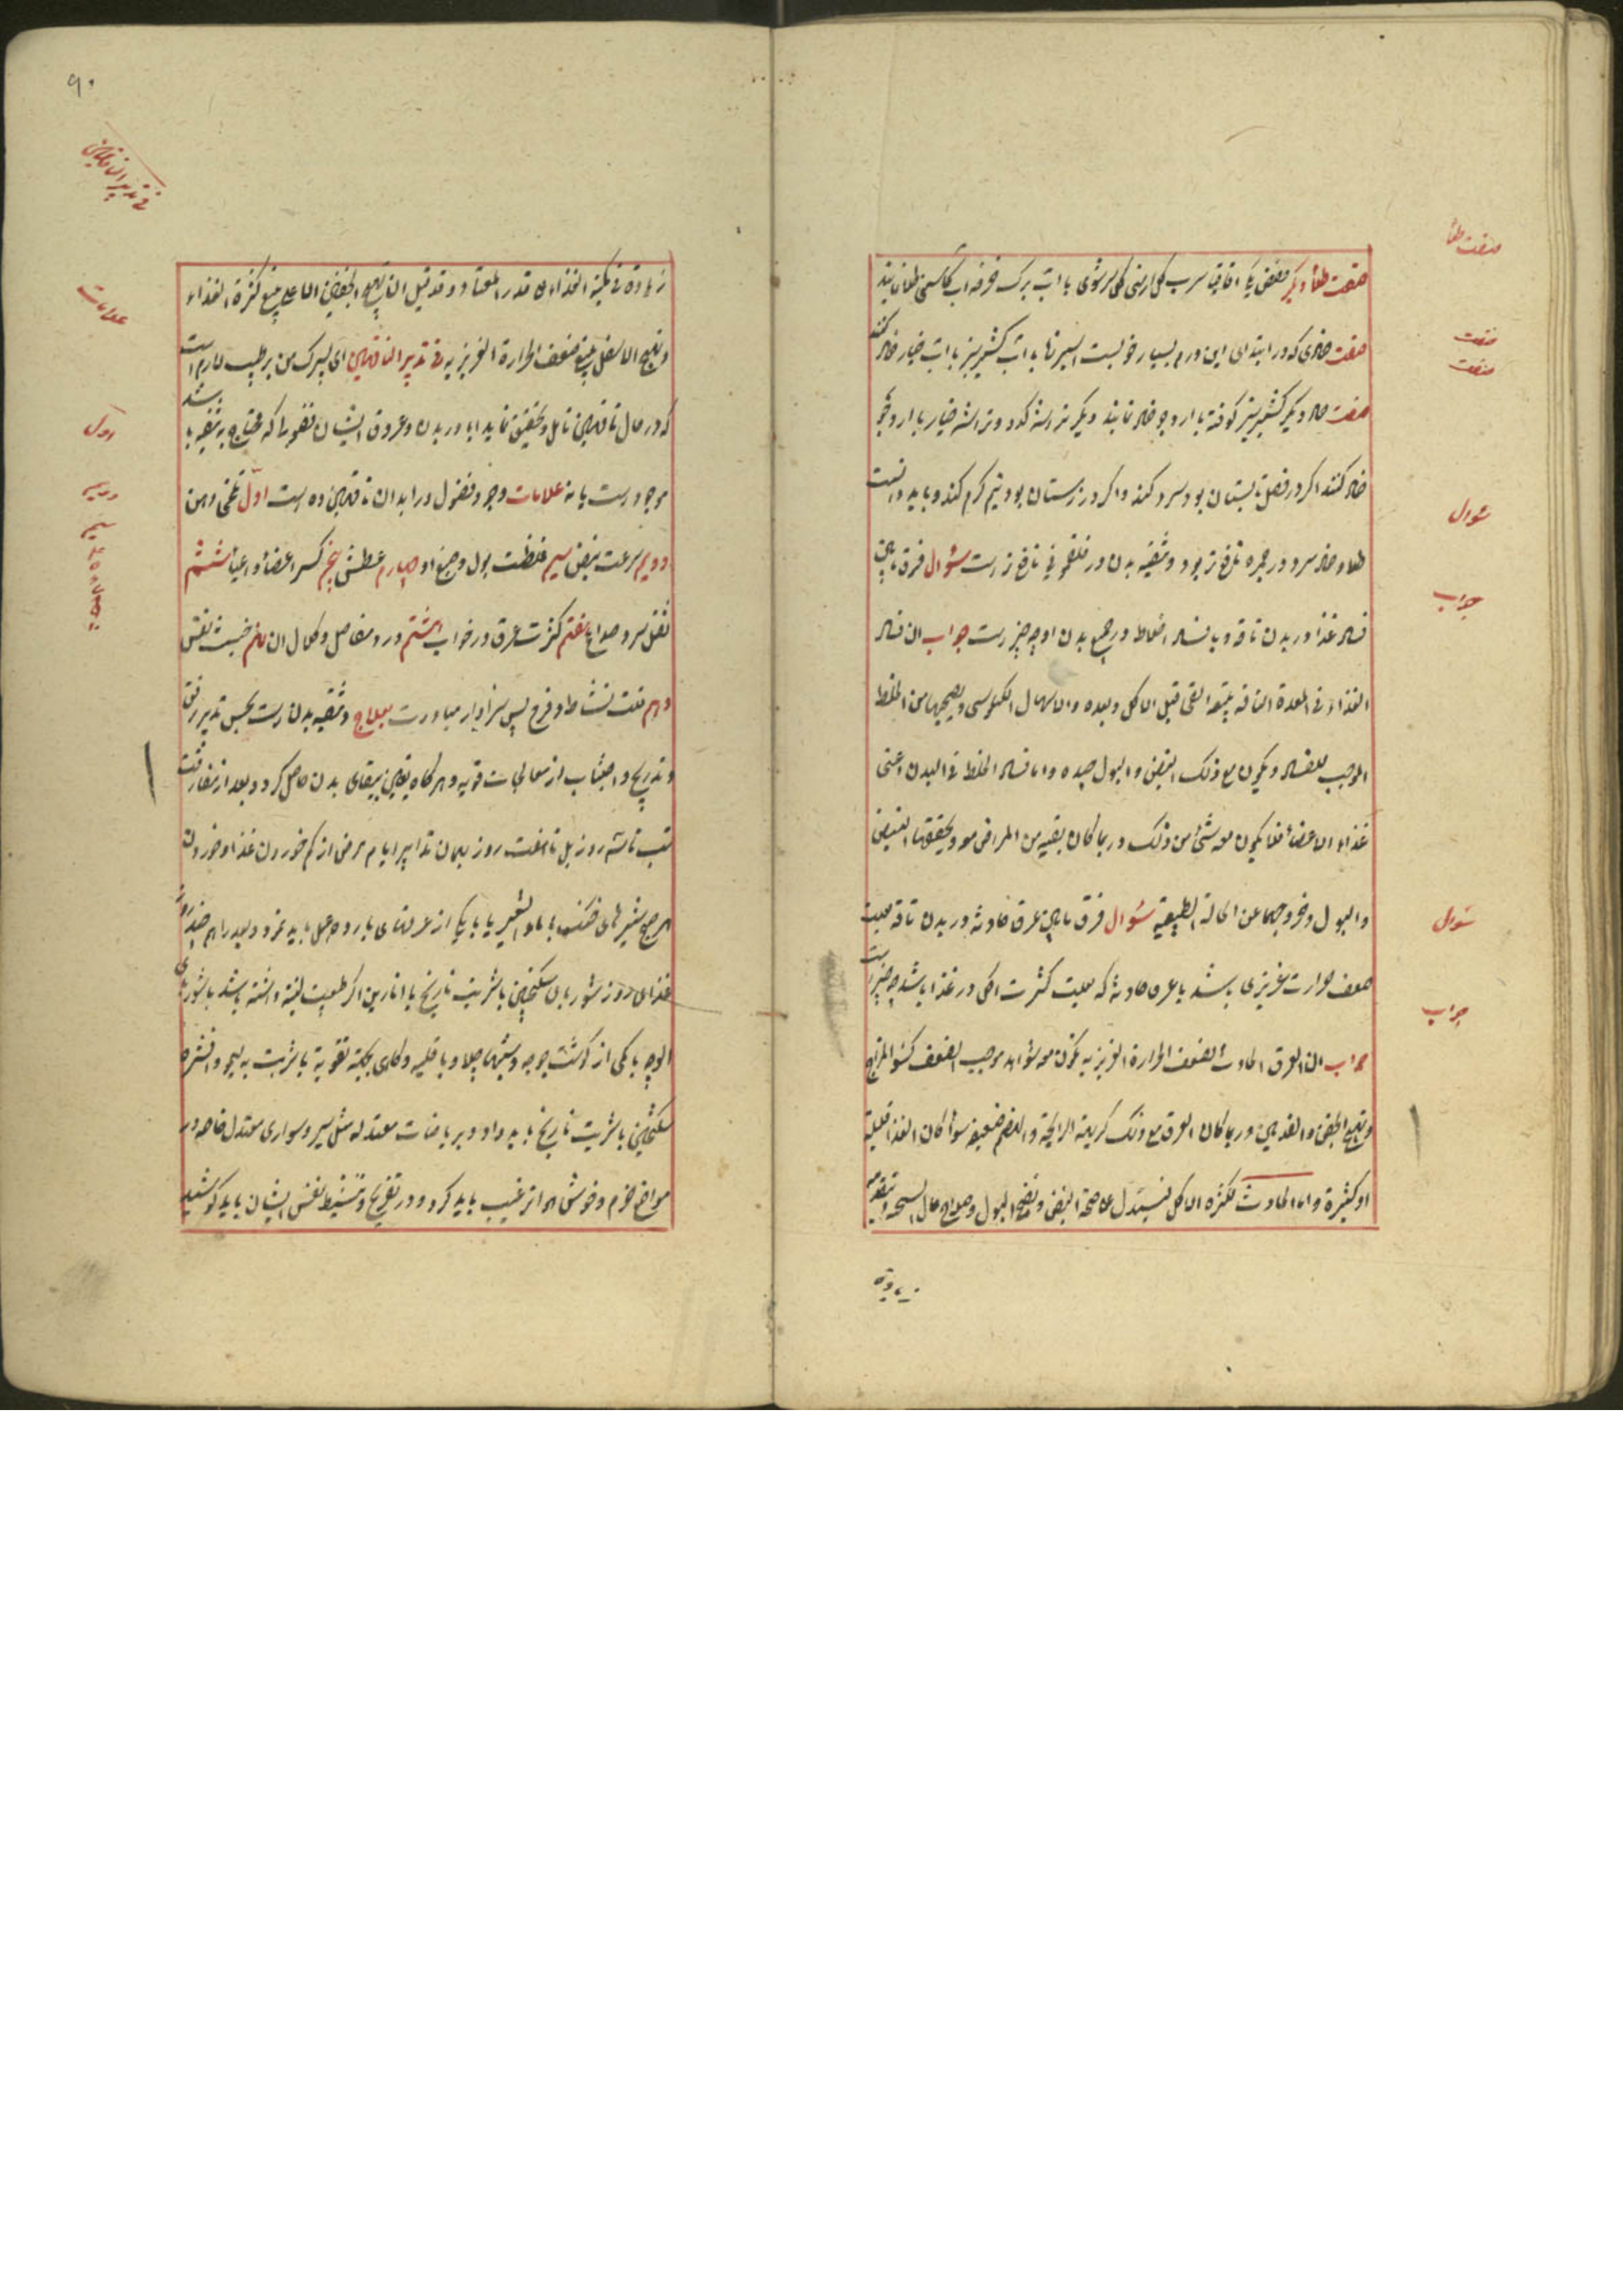 صفت طلأ
صفت طلأ دیگر حضض یا اقاقیا سرب گل ارمنی گل سرشوی با آب برک خرفه آب کاسنی طلا نمایند
صفت
صفت ضمادی که در ابتدای این ورم بسیار خوبست اسپرنا با آب کشنیز سبز با آب خیار ضماد کنند
صفت
صفت ضماد دیگر کشنیز سبز کوفته با ارد جو ضماد نمایند دیگر تراشه کدو و تراشه خیار با ارد جو
ضماد کنند اگر در فصل تابستان بود سرد کنند و اگر در زمستان بود نیم گرم کنند و باید دانست
سؤال
طلا و ضماد سرد در جمره نافع تر بود و تنقیه بدن در فلغمونی نافع تر است سؤال فرق مابین
جواب
فساد غذا در بدن ناقه و یا فساد اخلاط در جمیع بدن او چه چیز است جواب ان فساد
الغذاء فی المعدة الناقه یتبعه القی قبل الاکل و بعده والاسهال الکیلوسی و یصحبهما من الخلط
الموجب للفساد و یکون مع ذلک النبض و البول جیده و اما فساد الخلط فی البدن اعنی
غذاء الاعضأ فلا یکون معه شئ من ذلک و ربما کان بقیه من المراض معه و یحققها النبض
سؤال
والبول و خروجهما عن الحالة الطبیعیة سؤال فرق مابین عرق حادثه در بدن ناقه بعلت
ضعف حرارت غریزی باشد یا عرق حادثه که بعلت کثرت اکل در غذا باشد چه چیز است
جواب
جواب ان العرق الحادث لضعف الحرارة الغریزیه یکون معه سؤاله موجب لضعف کسوء المزاج
و تهیج الجفن و القدمین و ربما کان العرق مع ذلک کریهة الرایحة و الهضم ضعیف سوأ کان الغذا قلیلة
او کثیرة و اما الحادث لکثره الاکل فیستدل علی صحة النبض و نضج البول و صلاح حال السحنه و تقدمه
زیادة
۹۰
فی تدبیر الناقهین
زیادة فی کمیة الغذاء من قدر المعتاد و قد قیل ان تهیج الجفن الاعلی یتبع کثرة الغذاء
علامات
و تهیج الاسفل یتبع ضعف الحرارة الغریزیه فی تدبیر الناقهین ای پسرک من بر طبیب لازم است
که در حال ناقهین تامل و تحقیق نماید ایا در بدن و عروق ایشان فضولی را که محتاج به تنقیه باشد
اول
موجود است یا نه علامات وجود فضول در ابدان ناقهین ده است اول تلخی دهن
دویم سیم
دویم سرعت نبض سیم غلظت بول و صبغ او چهارم عطش پنجم کسر اعضأ و اعیأ ششم
ثقل سر و صداع هفتم کثرت عرق در خواب هشتم درد مفاصل و کلال ان نهم خبث نفس
دهم قلت نشاط و فرح پس سزاوار مبادرت بعلاج و تنقیه بدن است بحسن تدبیر رفق
و تدریج و اجتناب از معالجات قویه و هرگاه یقین بنقای بدن حاصل کرد و بعد از مفارقت
تب تا سه روز بل تا هفت روز بهمان تدابیر ایام مرض از کم خوردن غذا و خوردن
هر صبح شیرهای خنک با ماء الشعیر یا با یکی از عرقهای بارده عمل باید نمود و بعد از هم چند روز
غذای روز شوربای سکنجبین با شربت نارنج یا انارین اگر طبیعت لینة داشته باشد با شوربای
الوچه با کمی از گوشت جوجه و شبها چلاو با قلیه و گاهی بجهة تقویة با شربت به لیمو و افشره
سکنجبین با شربت نارنج باید داد و بریاضات معتدله مثل سیر و سواری معتدل خاصه در
مواضع خرم و خوش هوا ترغیب باید کرد و در تفریح و تنشیط نفس ایشان باید کوشید